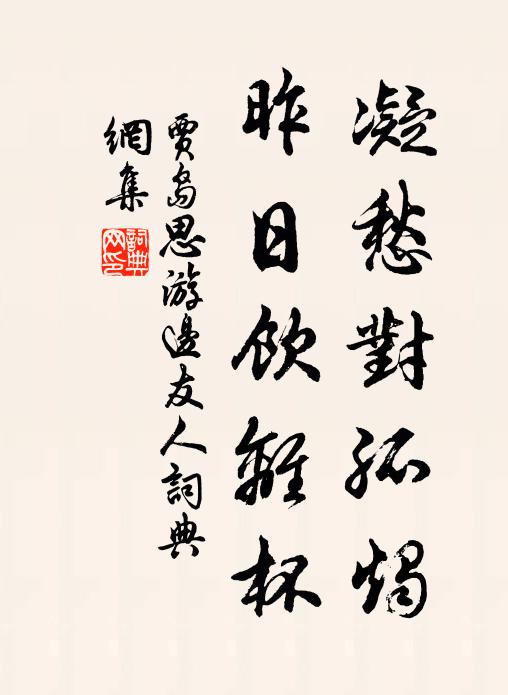 凝愁對孤燭
昨日飲離杯
賈島思游邊友人詞典
網集
詞典
网印